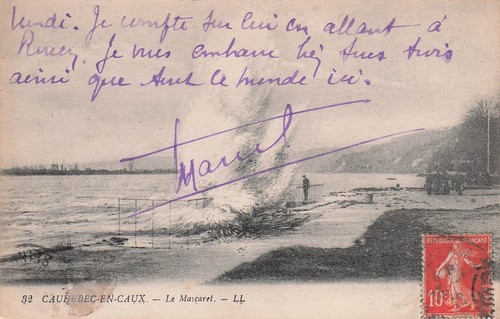 lundi. Je compte sur lui en allant à
Rouen. Je vous embrasse tous trois
ainsi que tout le monde ici.
Marcel
32 CAUDEBEC-EN-CAUX. - Le Mascaret. - LL
10c